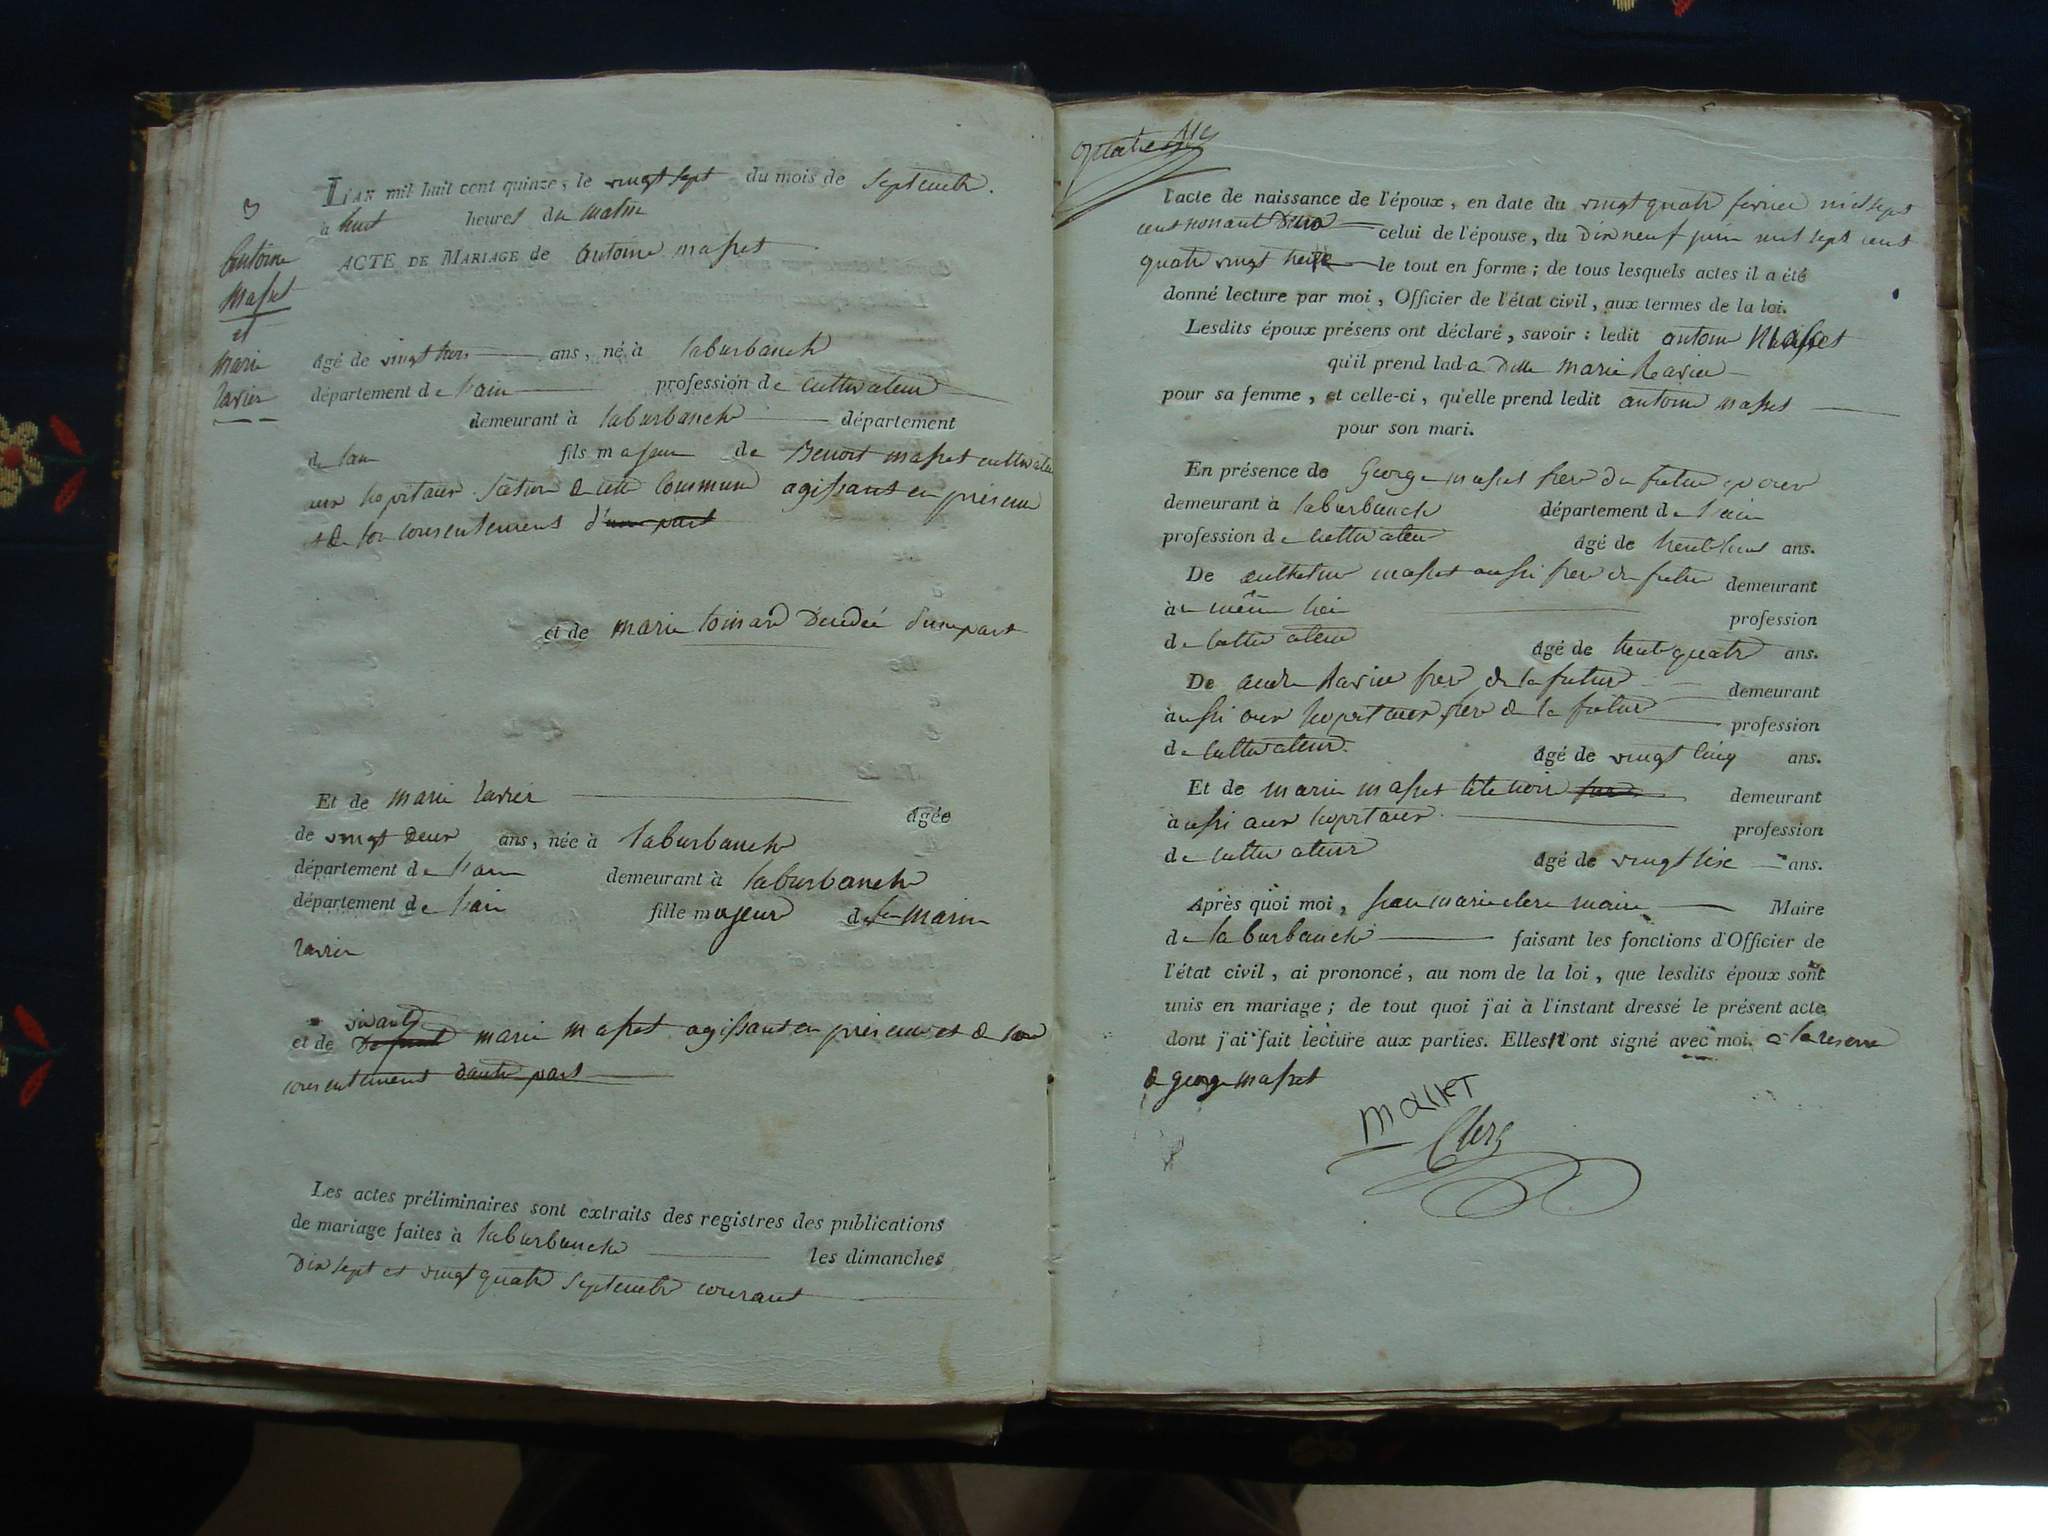 L'AN mil huit cent quinze, le vingt sept du mois de septembre.
à huit heures du matin
ACTE DE MARIAGE de antoine masset
3
antoine
masset
et
marie
ravier
âgé de vingt trois ans, né à laburbanche
département de l'ain profession de cultivateur
demeurant à laburbanche département
de l'ain fils majeur de Benoit masset cultivateur
aux hopitaux section de cette Commune agissant en présence
et de son consentement d'une part
et de marie décédée d'une part
Et de marie ravier âgée
de vingt deux ans, née à laburbanche
département de l'ain demeurant à laburbanche
département de l'ain fille majeure de marin
ravier
vivante
et de Defunte marie masset agissant en présence et de son
consentement d'autre part
Les actes préliminaires sont extraits des registres des publications
de mariage faites à laburbanche les dimanches
Dix sept et vingt quatre septembre courant
quatre
l'acte de naissance de l'époux, en date du vingt quatre fevrier mil sept
cent nonante Deux celui de l'épouse, du Dix neuf juin mil sept cent
quatre vingt treize le tout en forme; de tous lesquels actes il a été
donné lecture par moi, Officier de l'état civil, aux termes de la loi.
Lesdits époux présens ont déclaré, savoir: ledit antoine Masset
qu'il prend lad a Delle marie Ravier
pour sa femme, et celle-ci, qu'elle prend ledit antoine masset
pour son mari.
En présence de George masset frere du futur epoux
demeurant à laburbanche département de l'ain
profession de cultivateur âgé de ans.
De masset aussi frere du futur demeurant
au même lieu profession
de cultivateur âgé de trente quatre ans.
De andré Ravier frere de la future demeurant
aussi aux hopitaux frere de la future profession
de cultivateur. âgé de vingt cinq ans.
Et de marin masset demeurant
aussi aux hopitaux profession
de cultivateur âgé de vingt six ans.
Après quoi moi, jean marie clerc maire Maire
de la burbanche faisant les fonctions d'Officier de
l'état civil, ai prononcé, au nom de la loi, que lesdits époux sont
unis en mariage; de tout quoi j'ai à l'instant dressé le présent acte
dont j'ai fait lecture aux parties. Elles n'ont signé avec moi. a la reserve
de george masset
Masset
Clerc